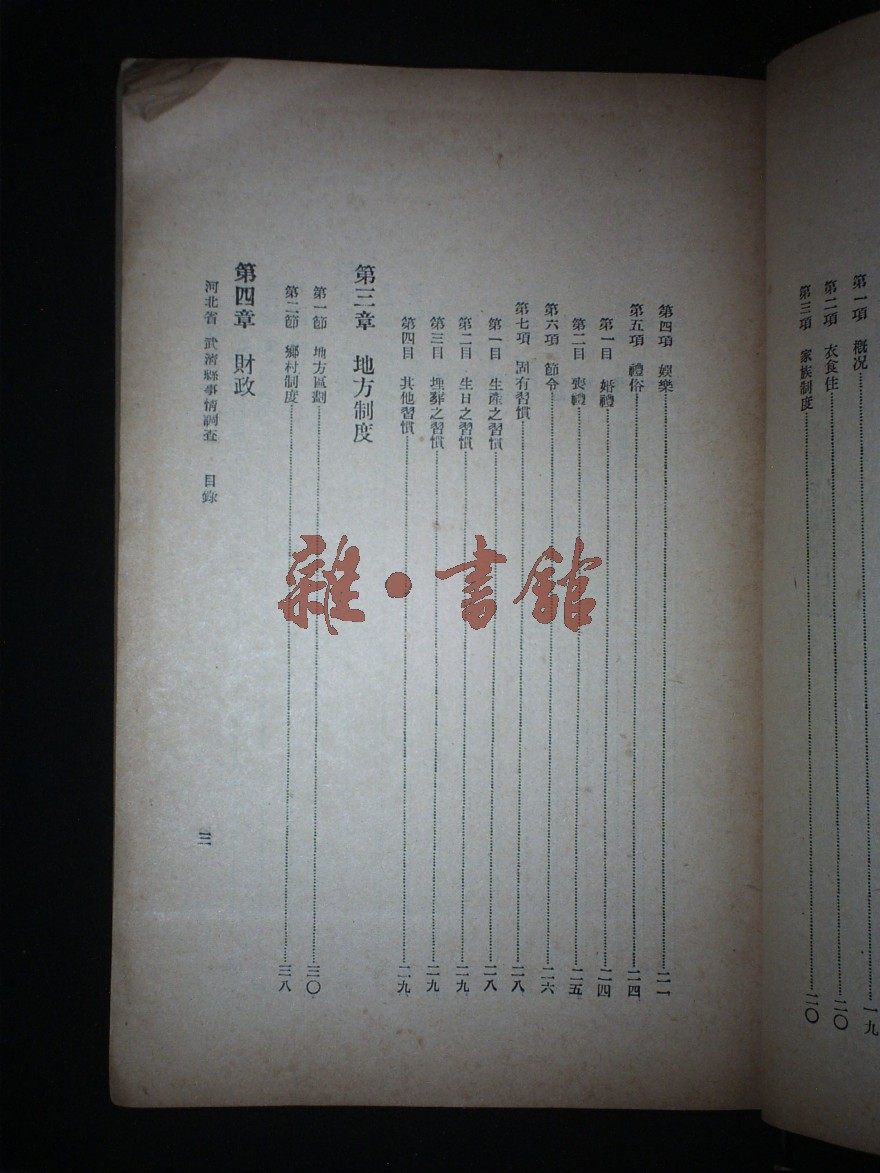 第一項　概況……一九
第二項　衣食住……二〇
第三項　家族制度……二〇
第四項　娛樂……二一
第五項　禮俗……二四
第一目　婚禮……二四
第二目　喪禮……二五
第六項　節令……二六
第七項　固有習慣……二八
第一目　生產之習慣……二八
第二目　生日之習慣……二九
第三目　埋葬之習慣……二九
第四目　其他習慣……二九
第三章　地方制度
第一節　地方區劃……三〇
第二節　鄉村制度……三八
第四章　財政
河北省　武清縣事情調查　目錄
三
雜·書館